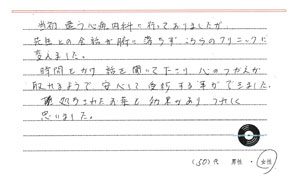 当初違う心療内科に行っておりましたが
先生との会話が腑に落ちずこちらのクリニックに
変えました。
時間をかけ話を聞いて下さり、心のつかえが
取れるようで、安心して受診する事ができました。
処方されたお薬も効果があり、うれしく
思いました。
(50)代 男性・女性